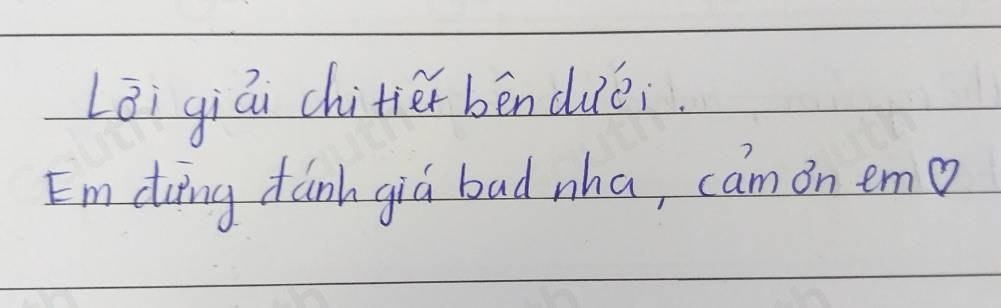 Lời giải chi tiết bên dưới.
Em đừng đánh giá bad nha, cảm ơn em ♡